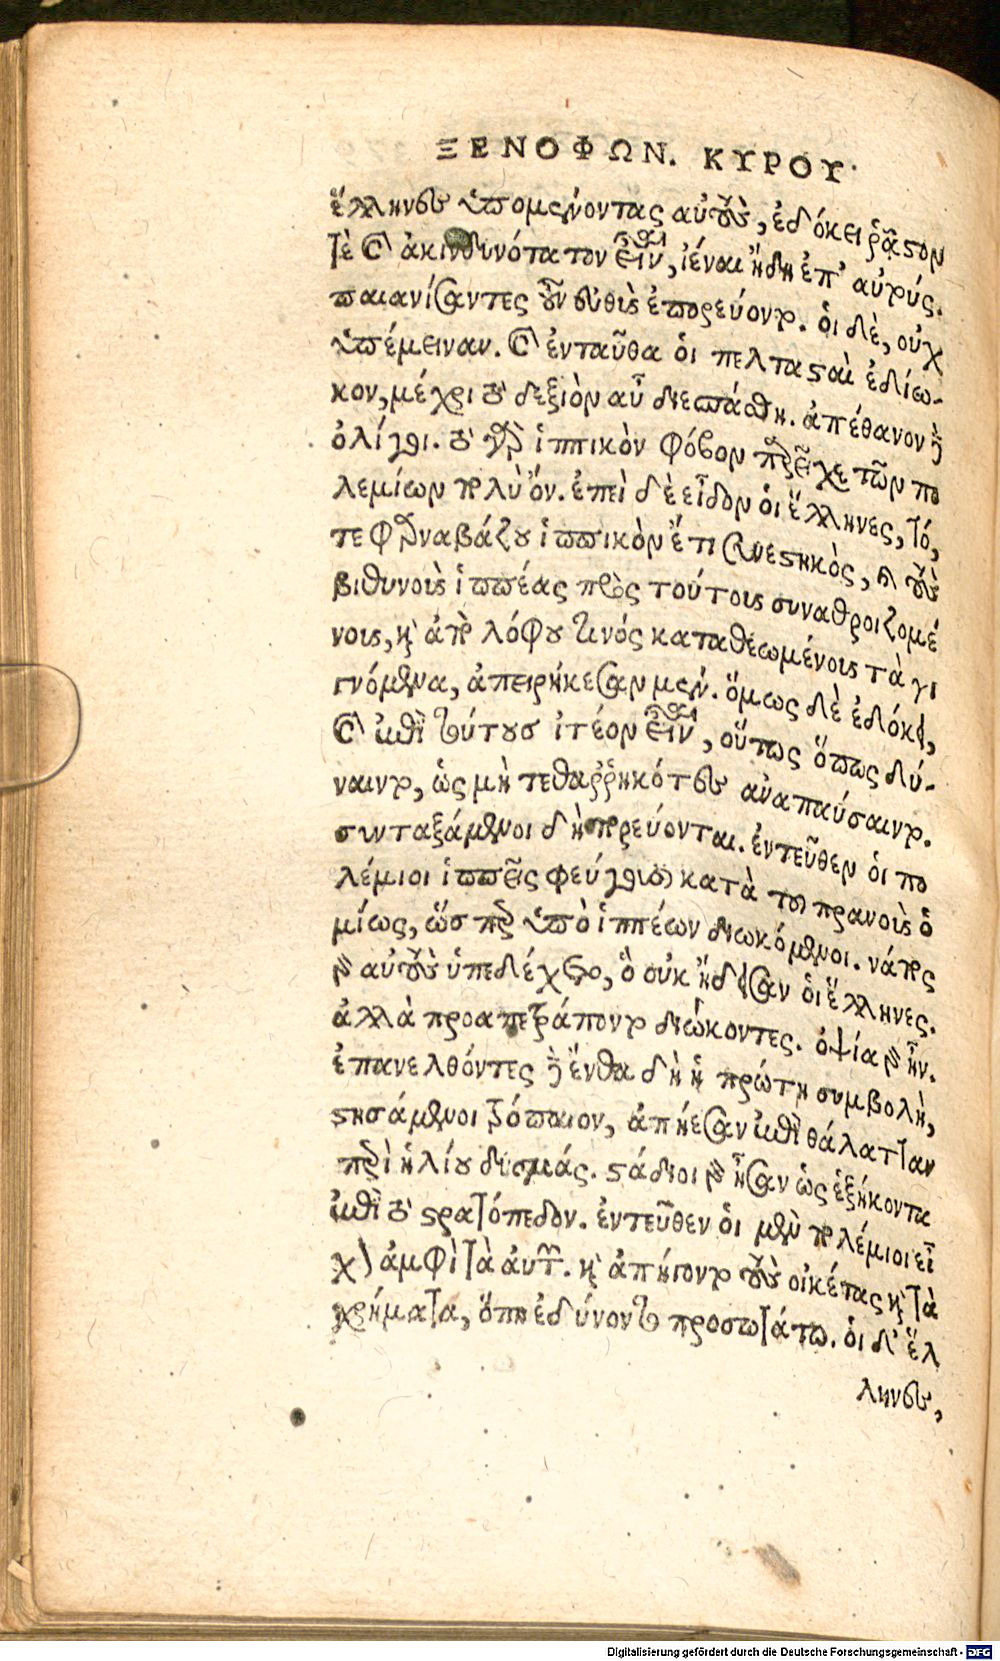 ΞΕΝΟΦΩΝ. ΚΥΡΟΥ
ἕλληνες ὑπομένοντας αὐτοὺς, ἐδόκει ῥᾷστον
τὲ καὶ ἀκινδυνότατον εἶναι, ἰέναι ἤδη ἐπ' αὐτούς.
παιανίσαντες οὖν εὐθὺς ἐπορεύοντο. οἱ δὲ, οὐχ
ὑπέμειναν. καὶ ἐνταῦθα οἱ πελτασταὶ ἐδίω-
κον, μέχρι τὸ δεξιὸν αὖ διεσπάσθη. ἀπέθανον δὲ
ὀλίγοι. τὸ γὰρ ἱππικὸν φόβον παρεῖχε τῶν πο
λεμίων πολὺ ὄν. ἐπεὶ δὲ εἶδον οἱ ἕλληνες, τό,
τε φαρναβάζου ἱππικὸν ἔτι συνεστηκὸς, καὶ τοὺς
βιθυνοὺς ἱππέας πρὸς τούτους συναθροιζομέ
νους, καὶ ἀπὸ λόφου τινός καταθεωμένους τὰ γι
γνόμενα, ἀπειρήκεσαν μέν. ὅμως δὲ ἐδόκει,
καὶ ἐπὶ τούτους ἰτέον εἶναι, οὕτως ὅπως δύ-
ναιντο, ὡς μὴ τεθαῤῥηκότες ἀναπαύσαιντο.
συνταξάμενοι δὴ πορεύονται. ἐντεῦθεν οἱ πο
λέμιοι ἱππεῖς φεύγουσι κατὰ τοῦ πρανοὺς ὁ
μίως, ὥσπερ ὑπὸ ἱππέων διωκόμενοι. νάπος
γὰρ αὐτοὺς ὑπεδέχετο, ὃ οὐκ ᾔδεισαν οἱ ἕλληνες.
ἀλλὰ προαπετράποντο διώκοντες. ὀψία γὰρ ἦν.
ἐπανελθόντες δὲ ἔνθα δὴ ἡ πρώτη συμβολὴ,
στησάμενοι τρόπαιον, ἀπῄεσαν ἐπὶ θάλατταν
περὶ ἡλίου δυσμάς. στάδιοι γὰρ ἦσαν ὡς ἑξήκοντα
ἐπὶ τὸ στρατόπεδον. ἐντεῦθεν οἱ μὲν πολέμιοι εἶ
χον ἀμφὶ τὰ αὑτῶν. καὶ ἀπήγοντο τοὺς οἰκέτας καὶ τὰ
χρήματα, ὅπη ἐδύνοντο προσωτάτω. οἱ δ' ἕλ
ληνες,
Digitalisierung gefördert durch die Deutsche Forschungsgemeinschaft - DFG